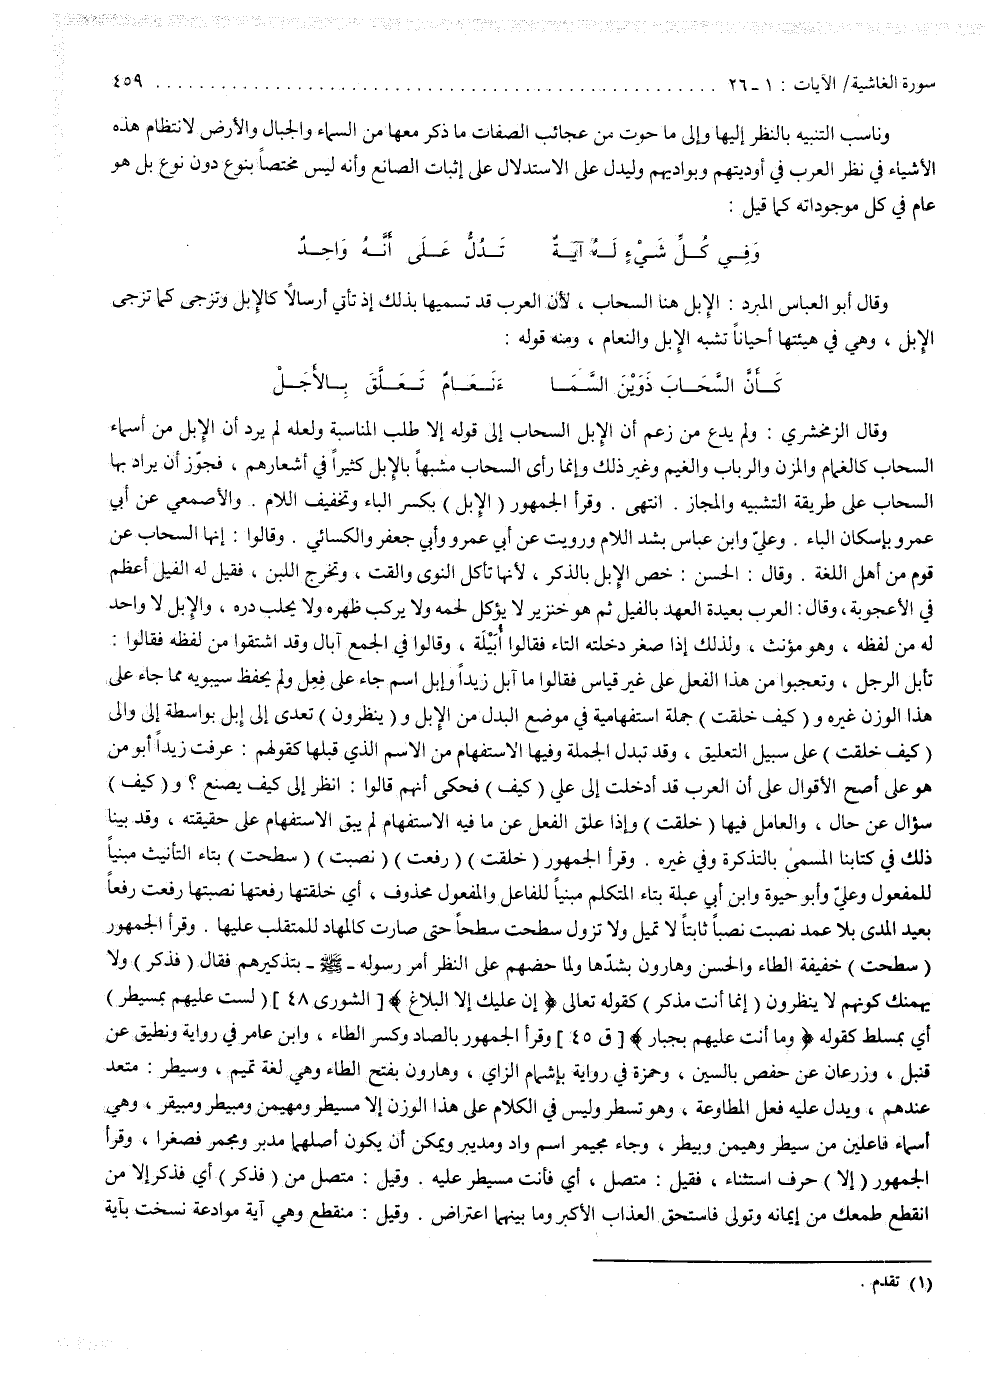 سورة الغاشية/ الآيات : ١ ـ ٢٦ ........................................ ٤٥٩
وناسب التنبيه بالنظر إليها وإلى ما حوت من عجائب الصفات ما ذكر معها من السماء والجبال والأرض لانتظام هذه
الأشياء في نظر العرب في أوديتهم وبواديهم وليدل على الاستدلال على إثبات الصانع وأنه ليس مختصاً بنوع دون نوع بل هو
عام في كل موجوداته كما قيل :
وَفِــي كُــلِّ شَــيْءٍ لَــهُ آيَــةٌ تَــدُلُّ عَــلَى أَنَّــهُ وَاحِــدٌ
وقال أبو العباس المبرد : الإبل هنا السحاب ، لأن العرب قد تسميها بذلك إذ تأتي أرسالًا كالإبل وتزجى كما تزجى
الإبل ، وهي في هيئتها أحياناً تشبه الإبل والنعام ، ومنه قوله :
كَــأَنَّ السَّحَــابَ ذَوَيْنَ السَّمَــا ءَنَعَــامٌ تَــعَــلَّقَ بِــالأَجَــلْ
وقال الزمخشري : ولم يدع من زعم أن الإبل السحاب إلى قوله إلا طلب المناسبة ولعله لم يرد أن الإبل من أسماء
السحاب كالغمام والمزن والرباب والغيم وغير ذلك وإنما رأى السحاب مشبهاً بالإبل كثيراً في أشعارهم ، فجوّز أن يراد بها
السحاب على طريقة التشبيه والمجاز . انتهى . وقرأ الجمهور ( الإبل ) بكسر الباء وتخفيف اللام . والأصمعي عن أبي
عمرو بإسكان الباء . وعليّ وابن عباس بشد اللام ورويت عن أبي عمرو وأبي جعفر والكسائي . وقالوا : إنها السحاب عن
قوم من أهل اللغة . وقال : الحسن : خص الإبل بالذكر ، لأنها تأكل النوى والقت ، وتخرج اللبن ، فقيل له الفيل أعظم
في الأعجوبة ، وقال : العرب بعيدة العهد بالفيل ثم هو خنزير لا يؤكل لحمه ولا يركب ظهره ولا يحلب دره ، والإبل لا واحد
له من لفظه ، وهو مؤنث ، ولذلك إذا صغر دخلته التاء فقالوا أُبَيْلَة ، وقالوا في الجمع آبال وقد اشتقوا من لفظه فقالوا :
تأبل الرجل ، وتعجبوا من هذا الفعل على غير قياس فقالوا ما آبل زيداً وإبل اسم جاء على فِعِل ولم يحفظ سيبويه مما جاء على
هذا الوزن غيره و ( كيف خلقت ) جملة استفهامية في موضع البدل من الإبل و ( ينظرون ) تعدى إلى إبل بواسطة إلى والى
( كيف خلقت ) على سبيل التعليق ، وقد تبدل الجملة وفيها الاستفهام من الاسم الذي قبلها كقولهم : عرفت زيداً أبو من
هو على أصح الأقوال على أن العرب قد أدخلت إلى علي ( كيف ) فحكى أنهم قالوا : انظر إلى كيف يصنع ؟ و ( كيف )
سؤال عن حال ، والعامل فيها ( خلقت ) وإذا علق الفعل عن ما فيه الاستفهام لم يبق الاستفهام على حقيقته ، وقد بينا
ذلك في كتابنا المسمىٰ بالتذكرة وفي غيره . وقرأ الجمهور ( خلقت ) ( رفعت ) ( نصبت ) ( سطحت ) بتاء التأنيث مبنياً
للمفعول وعليّ وأبو حيوة وابن أبي عبلة بتاء المتكلم مبنياً للفاعل والمفعول محذوف ، أي خلقتها رفعتها نصبتها رفعت رفعاً
بعيد المدى بلا عمد نصبت نصباً ثابتاً لا تميل ولا تزول سطحت سطحاً حتى صارت كالمهاد للمتقلب عليها . وقرأ الجمهور
( سطحت ) خفيفة الطاء والحسن وهارون بشدّها ولما حضهم على النظر أمر رسوله ـ ﷺ ـ بتذكيرهم فقال ( فذكر ) ولا
يهمنك كونهم لا ينظرون ( إنما أنت مذكر ) كقوله تعالى ﴿ إن عليك إلا البلاغ ﴾ [ الشورى ٤٨ ] ( لست عليهم بمسيطر )
أي بمسلط كقوله ﴿ وما أنت عليهم بجبار ﴾ [ ق ٤٥ ] وقرأ الجمهور بالصاد وكسر الطاء ، وابن عامر في رواية ونطيق عن
قنبل ، وزرعان عن حفص بالسين ، وحمزة في رواية بإشمام الزاي ، وهارون بفتح الطاء وهي لغة تميم ، وسيطر : متعد
عندهم ، ويدل عليه فعل المطاوعة ، وهو تسطر وليس في الكلام على هذا الوزن إلا مسيطر ومهيمن ومبيطر ومبيقر ، وهي
أسماء فاعلين من سيطر وهيمن وبيطر ، وجاء مجيمر اسم واد ومديبر ويمكن أن يكون أصلهما مدبر ومجمر فصغرا ، وقرأ
الجمهور ( إلا ) حرف استثناء ، فقيل : متصل ، أي فأنت مسيطر عليه . وقيل : متصل من ( فذكر ) أي فذكر إلا من
انقطع طمعك من إيمانه وتولى فاستحق العذاب الأكبر وما بينها اعتراض . وقيل : منقطع وهي آية موادعة نسخت بآية
(١) تقدم .